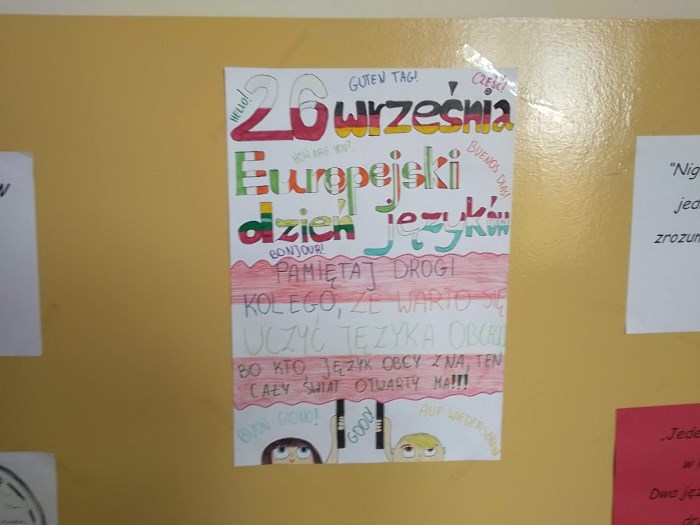 GUTEN TAG!
CZEŚĆ!
HELLO!
26 września
HOW ARE YOU!
BUENOS DIAS!
Europejski
dzień języków
BONJOUR!
PAMIĘTAJ DROGI
KOLEGO, ŻE WARTO SIĘ
UCZYĆ JĘZYKA OBCEGO
BO KTO JĘZYK OBCY ZNA, TEN
CAŁY ŚWIAT OTWARTY MA!!!
BUON GIORNO!
GOOD
AUF WIEDERSEHEN!
"Nig
jed
zrozum
„Jede
w
Dwa ję